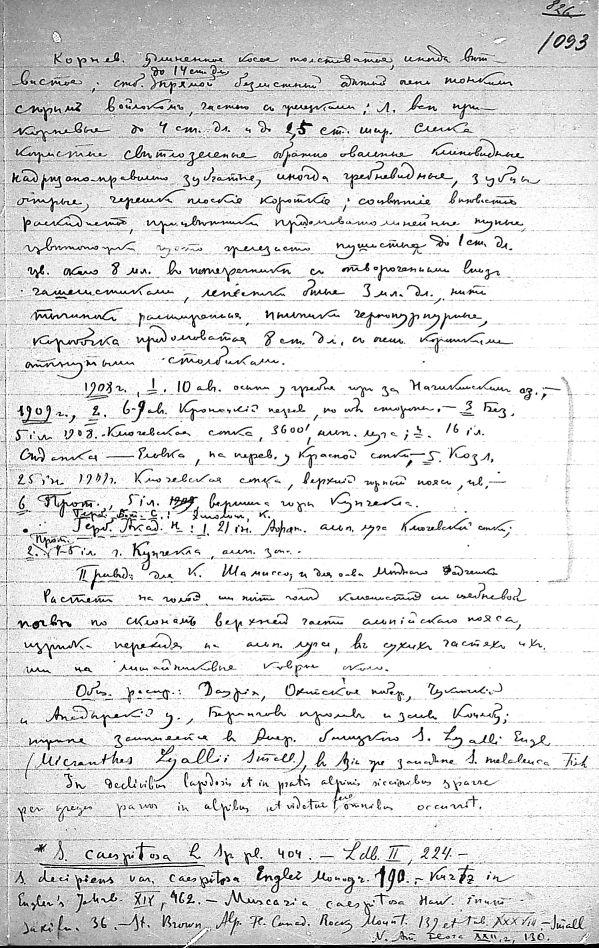 826
1093
Корнев. удлиненное косое толстоватое, иногда вет-
вистое; стб. до 14 ст. дл. прямой безлистный очень тонким
серым войлоком, частью с ; Л. все при-
корневые до 4 ст. дл. и до 2,5 ст. шир. слегка
светлозеленые обратно овальные клиновидные
надрезано-правильно зубчатые, иногда гребневидные, зубцы
острые, черешки плоские короткие; соцветие
раскидисто, прицветники продолговато линейные тупые,
цветоножки густо железисто пушистые до 1 ст. дл.
цв. около 8 мл. в поперечнике с отвороченными вниз
чашелистиками, лепестки белые 3 мл. дл., нити
тычинок расширенные, пыльники чернопурпурные,
коробочка продолговатая 8 ст. дл. с очень короткими
столбиками.
1908 г., 1. 10 ав. осыпи у гребня горы за Начикинским оз.,—
1909 г., 2. 6-9 ав. Кроноцкий перев., по обе стороны,— 3 Без.
5 іл. 1908. Ключевская сопка, 3600', альп. луга; 4. 16 іл.
Седанка — Еловка, на перев. у Красной сопки,— 5. Козл.
25 ін. 1909 г. Ключевская сопка, верхний горный пояс, цв.,—
6 Прот., 5 іл. 1909 вершина горы Кунчекла.
Герб. Бот. С.: К.
Герб. Акад. Н.: 1 21 ін. альп. луга Ключевской сопки;
2. Прот. 4-5 іл. г. Кунчекла, альп. зона.
Привед. для К. Шамиссо, и для о-ва Медного Федченко
Растет на голой или почти голой каменистой или щебневой
почве по склонам верхней части альпийского пояса,
изредка переходя на альп. луга, в сухих частях их
или на лишайниковые ковры около.
Общ. распр.: Даурия, Охотское побер., Чукотский
и Анадырский у., Берингов пролив и залив Коцебу;
заменяется в Амер. близкою S. Lyallii Engl
(Micranthes Lyallii Small), в Азии западнее S. melaleuca Fisch
In declivibus lapidosis et in pratis alpinis siccioribus sparse
per greges parvos in alpibus ut videtur fere omnibus occurrit.
* S. caespitosa L Sp pl. 404. — Ldb. II, 224. —
S. decipiens var. caespitosa Engler Monogr. 190. — Kurtz in
Engler's Jahrb. XIX, 462. — Muscaria caespitosa Haw. Enum
Saxifr. 36. — St. Brown, Alp. Fl. Canad. Rocky Mount. 139 et tab. XXXVII — Small
N. Am. Flora XXII, 2, 130.